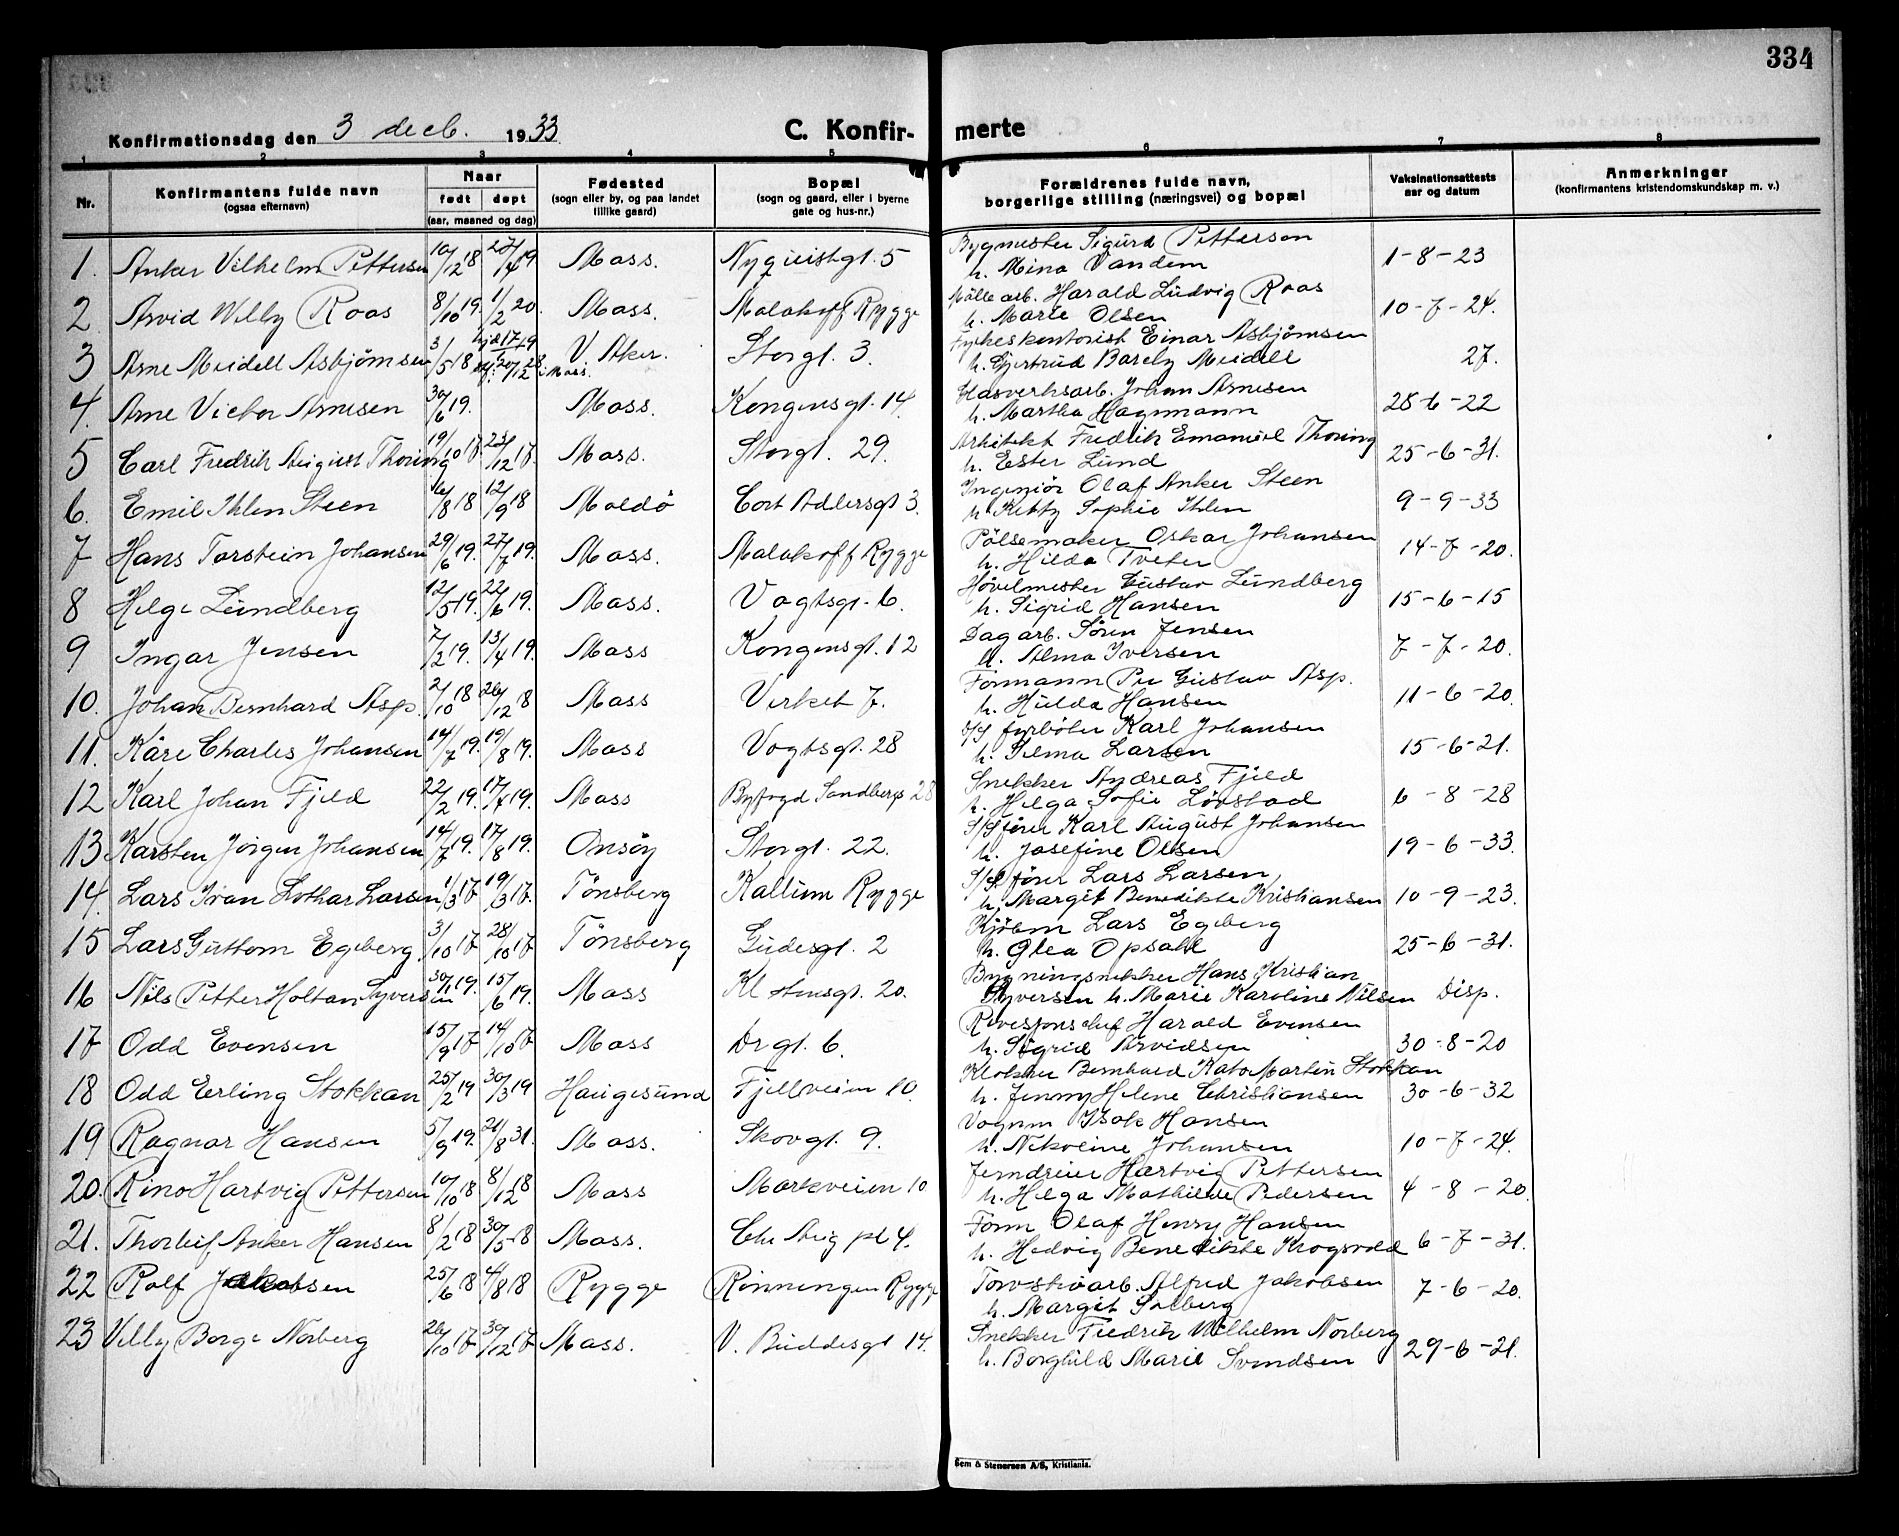 334
Konfirmationsdag den 3 decb. 1933
C. Konfir- merte
1 2 3 4 5 6 7 8
Nr. Konfirmantens fulde navn (ogsaa efternavn) Naar født døpt (aar, maaned og dag) Fødested (sogn eller by, og paa landet tillike gaard) Bopæl (sogn og gaard, eller i byerne gate og hus-nr.) Forældrenes fulde navn, borgerlige stilling (næringsvei) og bopæl Vaksinationsattests aar og datum Anmerkninger (konfirmantens kristendomskundskap m. v.)
1. Anker Vilhelm Pettersen 10/12 18 27/4 19 Moss. Nyquistgt. 5 Bygmester Sigurd Pettersen 1-8-23
h. Mina Vandem
2. Arvid Willy Roos 8/10 19. 1/2 20. Moss. Malakoff Rygge Mölle arb. Harald Ludvig Roos 10-7-24.
h. Marie Olsen
3 Arne Meidell Asbjörnsen 3/5 18 V. Aker. Storgt. 3. Einar Asbjörnsen 27.
h. Gjertrud Barely Meidell
4. Arne Victor Arnesen 30/6 19. Moss. Kongensgt. 14. Glasverksarb. Johan Arnesen 28-6-22
h. Martha Hagemann
5 Carl Fredrik August Thoring 19/10 17. 23/12 17. Moss. Storgt. 29. Arkitekt Fredrik Emanuel Thoring 25-6-31.
h. Ester Lund
6. Emil Ihlen Steen 16/8 18 12/9 18 Moldö Cort Adlersgt 3. Ingeniör Olaf Anker Steen 9-9-33
h. Ketty Sophie Ihlen
7 Hans Torstein Johansen 29/6 19. 27/7 19. Moss. Malakoff Rygge Pölsemaker Oskar Johansen 14-7-20.
h. Hilda Tveter
8 Helge Lundberg 12/5 19. 22/6 19. Moss. Vogtsgt. 6. Hövelmester Gustav Lundberg 15-6-15
h. Sigrid Hansen
9 Ingar Jensen 7/2 19. 13/4 19. Moss Kongensgt. 12 Dagarb. Sören Jensen 7-7-20.
h. Alma Iversen
10. Johan Bernhard Asp. 2/10 18 26/12 18 Moss Verket 7. Formann Per Gustav Asp. 11-6-20
h. Hulda Hansen
11. Kåre Charles Johansen 14/7 19. 19/8 19. Moss Vogtsgt. 28 S/S fyrböter Karl Johansen 15-6-21.
h. Selma Larsen
12 Karl Johan Fjeld 22/2 19. 17/4 19. Moss Byfogd Sandbergs 28 Snekker Andreas Fjeld 6-8-28
h. Helga Sofie Lövstad
13 Karsten Jörgen Johansen 14/7 19. 17/8 19. Onsöy Storgt. 22. S/S förer Karl August Johansen 19-6-33.
h. Josefine Olsen
14. Lars Ivan Lothar Larsen 1/3 17. 19/3 17. Tönsberg Kallum Rygge S/S förer Lars Larsen, 10-9-23.
h. Margit Benedikte Kristiansen
15 Lars Guttorm Egeberg. 3/10 17 28/10 17 Tönsberg Gudesgt. 2 Kjöbm Lars Egeberg 25-6-31.
h. Glea Opsahl
16 Nils Petter Holtan Syversen 30/1 19. 15/6 19. Moss Kl 20. Bygningsnekker Hans Kristian Disp.
Syversen h. Marie Karoline Nilsen
17 Odd Evensen 15/9 17 14/10 17 Moss Drgt. 6. Harald Evensen 30-8-20
h. Sigrid Arvidsen
18 Odd Erling Stokkan 25/2 19 30/3 19 Haugesund Fjellveien 10. Klokker Bernhard Kato Martin Stokkan 30-6-32
h. Jenny Helene Christiansen
19 Ragnar Hansen 5/9 19. 21/8 31. Moss. Skovgt. 9. Vognm Isak Hansen 10-7-24.
h. Nikoline Johansen
20. Rino Hartvig Pettersen 10/10 18 8/12 18 Moss Markveien 10 Jerndreier Hartvig Pettersen 4-8-20.
h. Helga Mathilde Pedersen
21. Thorleif Anker Hansen 8/2 18 30/5 18 Moss. Chr Aug pl 4. Form Olaf Henry Hansen 6-7-31.
h. Hedvig Benedikte Krogsvold
22 Rolf Jakobsen 25/6 18 4/8 18 Rygge Rönningen Rygge Alfred Jakobsen 7-6-20.
h. Margit Solberg
23 Villy Borge Norberg 26/10 17 30/12 17 Moss. V. Buddesgt 14. Snekker Fredrik Wilhelm Norberg 29-6-21.
h. Borghild Marie Svendsen
Sem & Stenersen A/S, Kristiania.